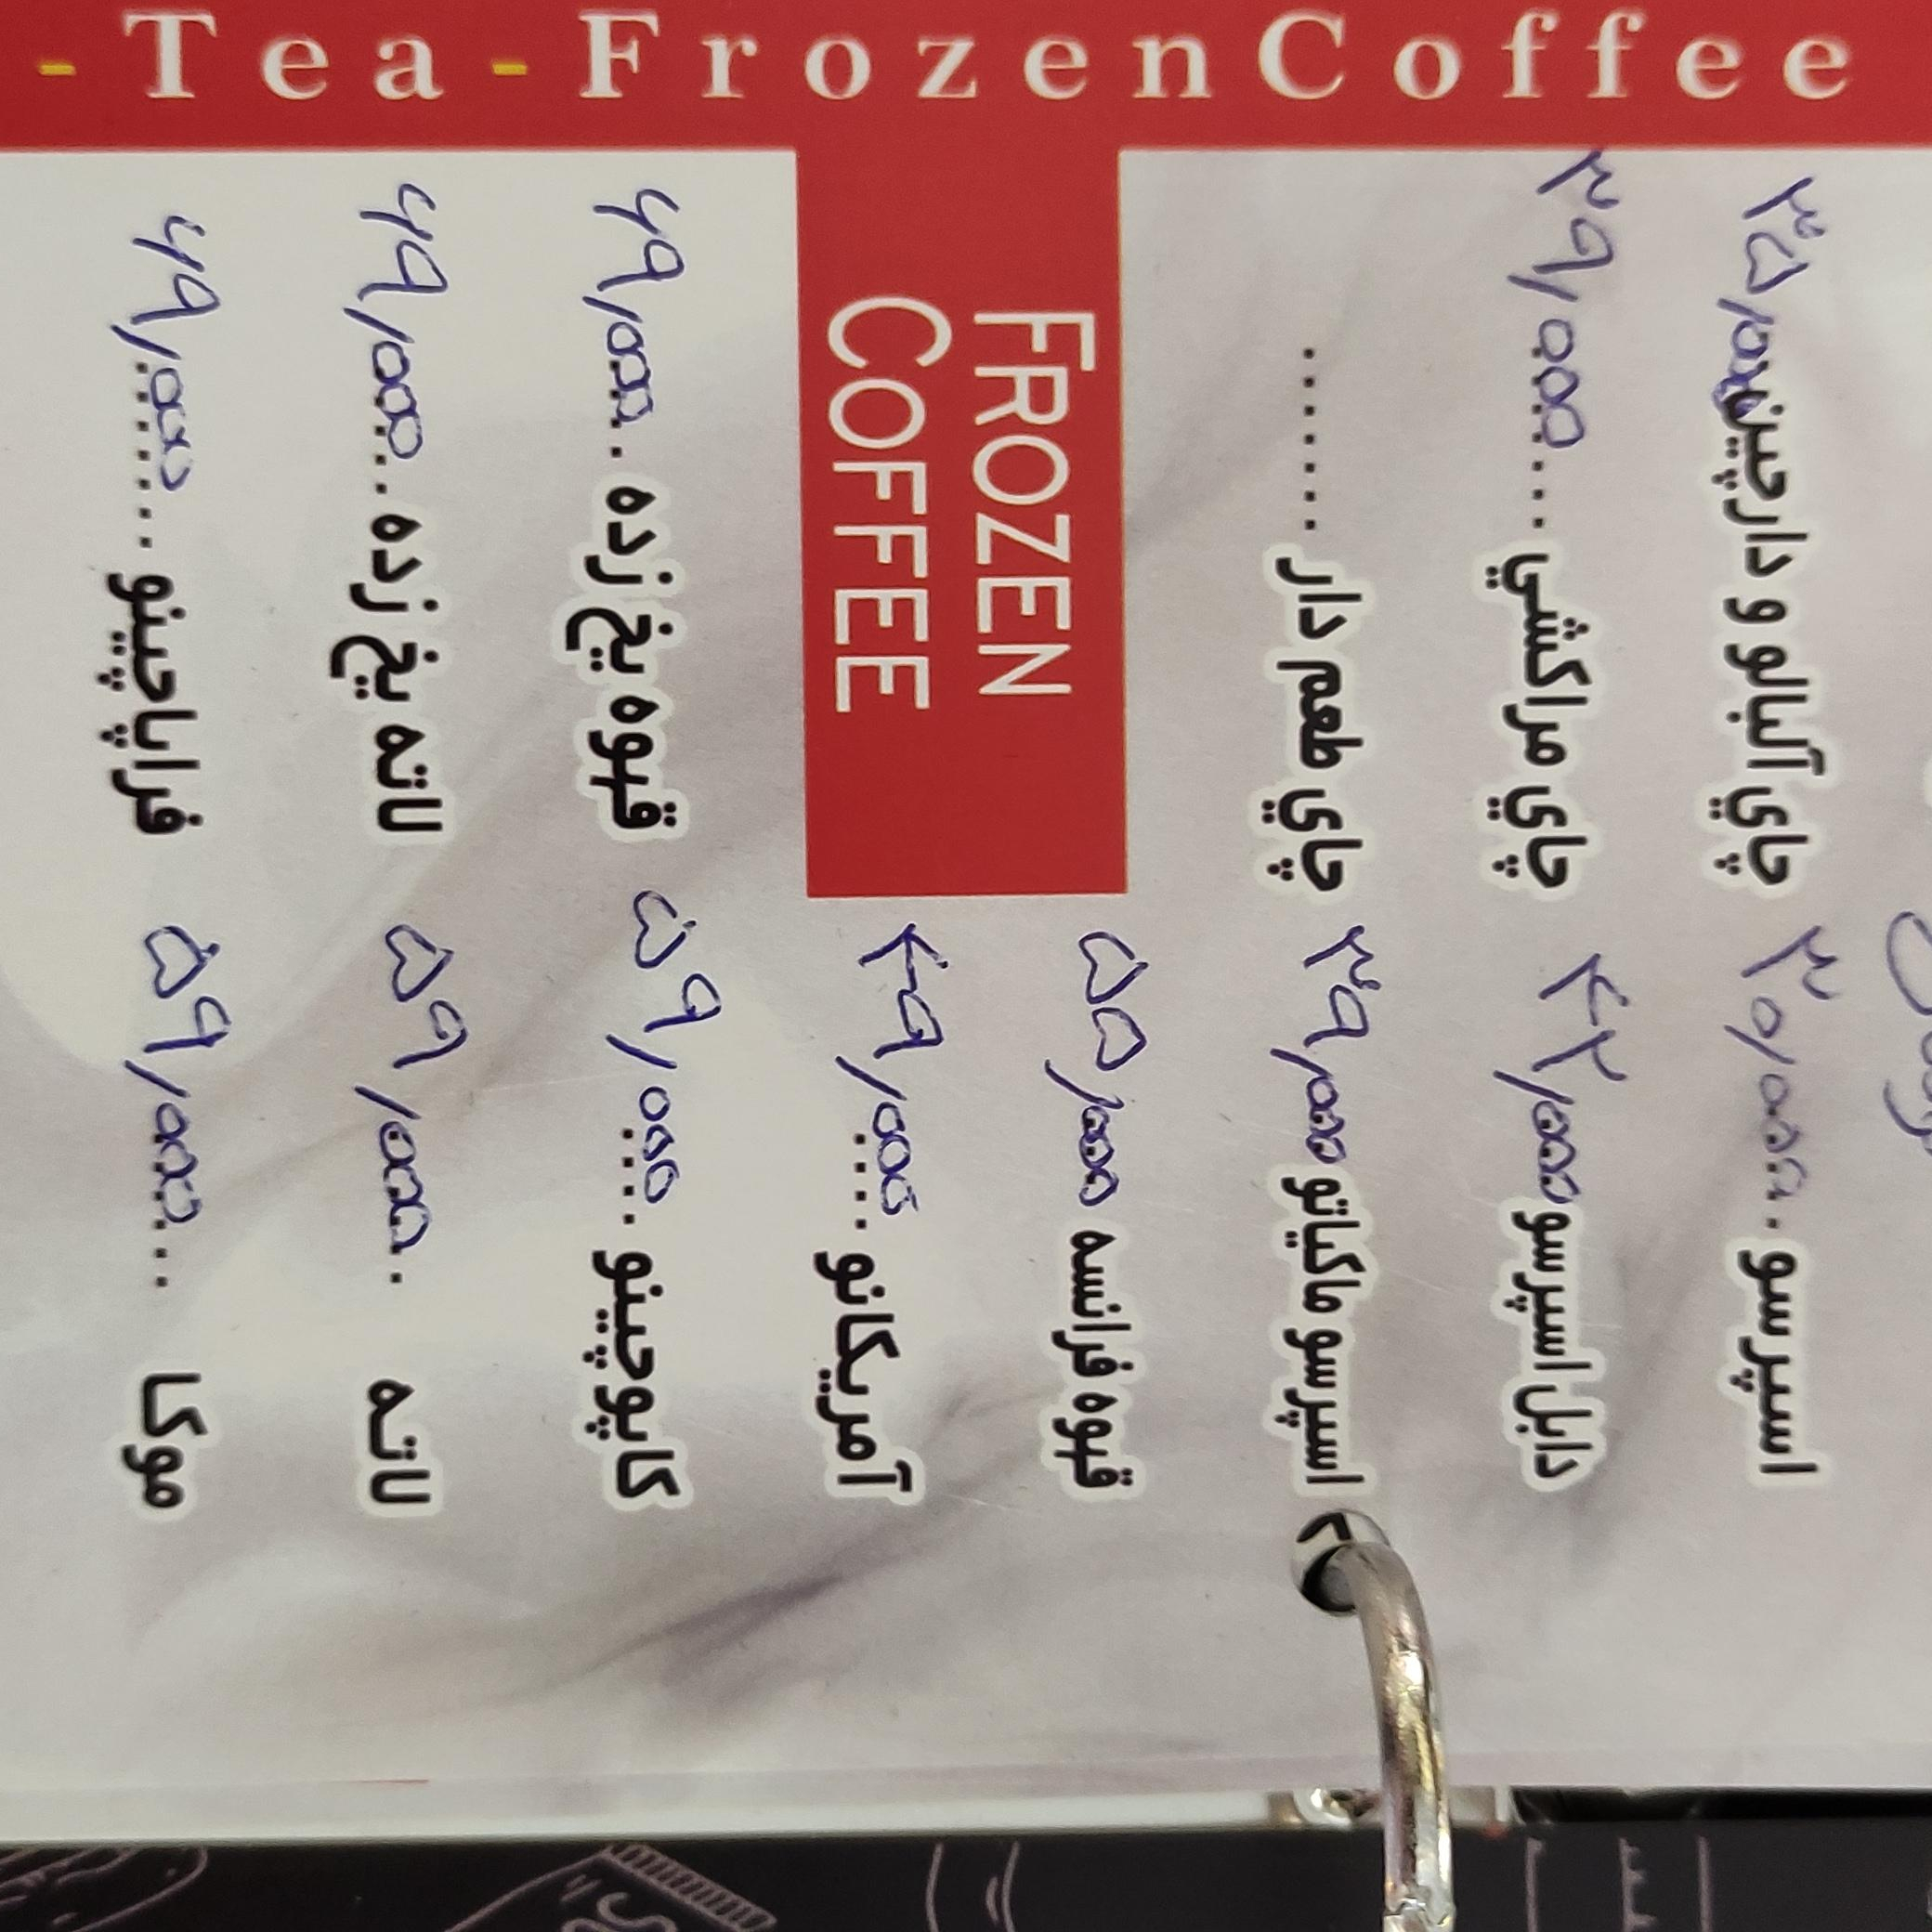 -Tea-FrozenCoffee
اسپرسو . ۳۰/۰۰۰
دابل اسپرسو ۴۲/۰۰۰
اسپرسو ماکیاتو ۳۹/۰۰۰
قهوه فرانسه ۵۵/۰۰۰
آمریکانو .... ۴۹/۰۰۰
کاپوچینو ..... ۵۹/۰۰۰
لاته . ۵۹/۰۰۰
موکا .. ۵۹/۰۰۰
چاي آلبالو و دارچین ۳۵/۰۰۰
چاي مراکشي ... ۳۹/۰۰۰
چاي طعم دار .......
FROZEN
COFFEE
قهوه یخ زده .. ۶۹/۰۰۰
لاته یخ زده .. ۶۹/۰۰۰
فراپاچینو ....... ۶۹/۰۰۰